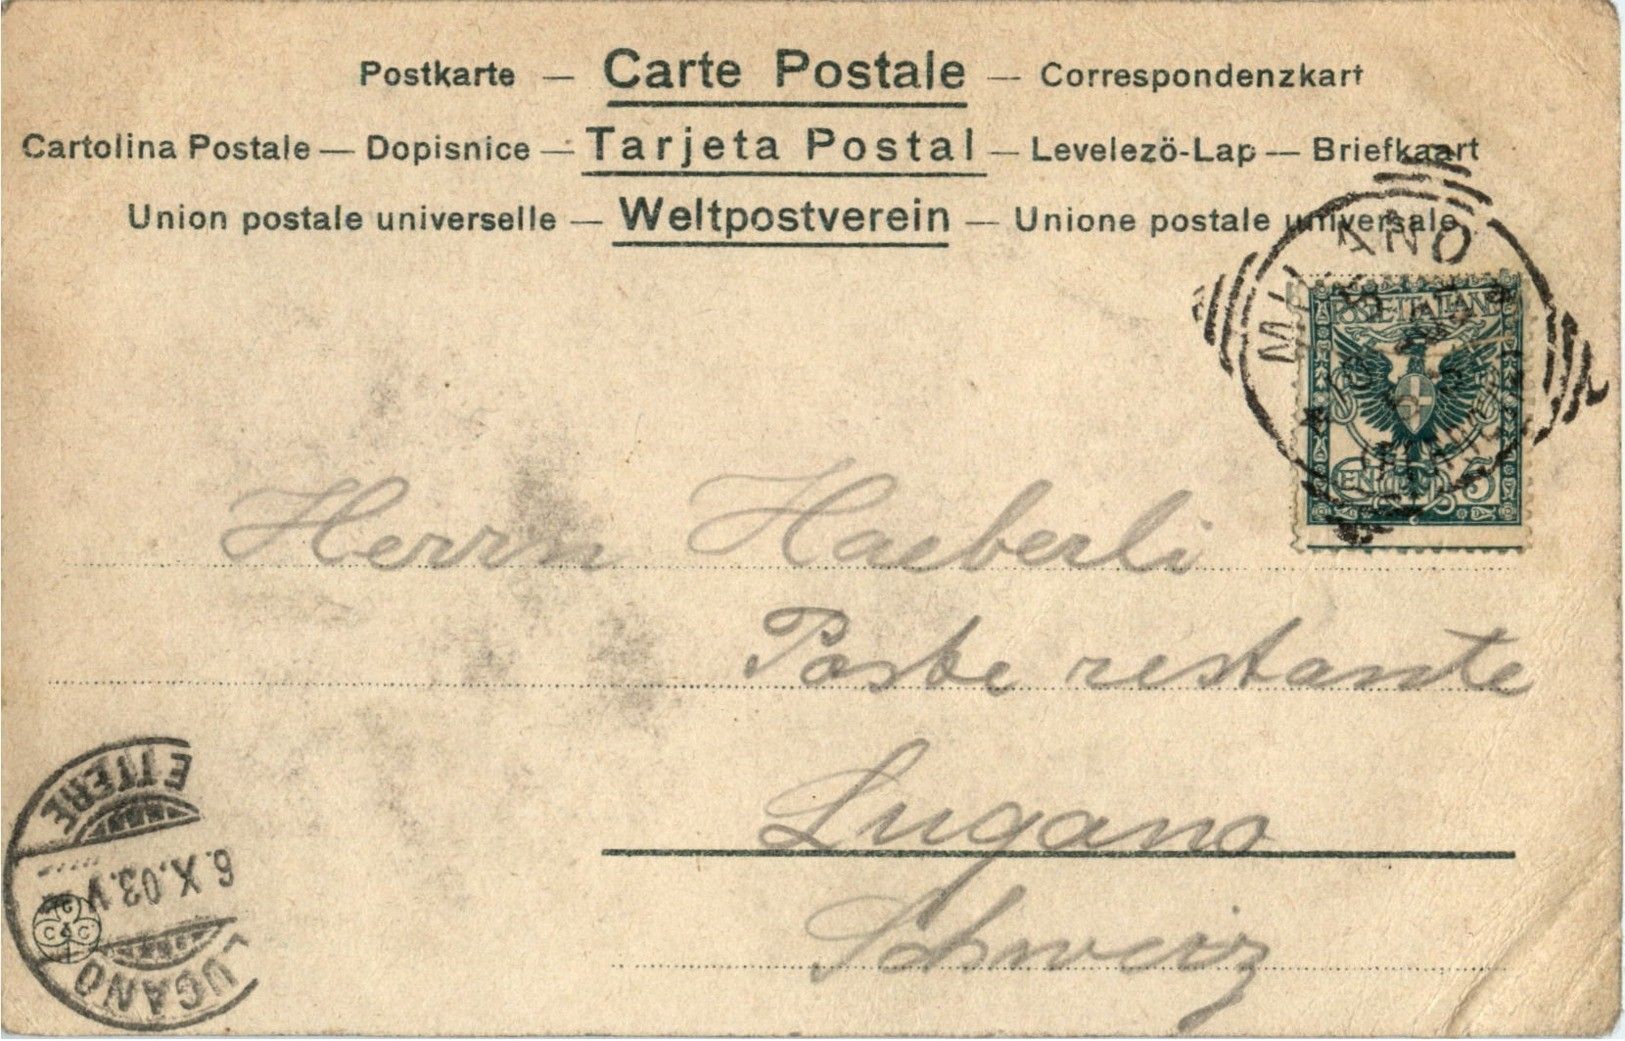 Postkarte — Carte Postale — Correspondenzkart
Cartolina Postale — Dopisnice — Tarjeta Postal — Levelezö-Lap — Briefkaart
Union postale universelle — Weltpostverein — Unione postale universale
MILANO
POSTE ITALIANE
CENT. 5
Herrn Haeberli
Poste restante
Lugano
Schweiz
LETTERE
6.X.03.V
LUGANO